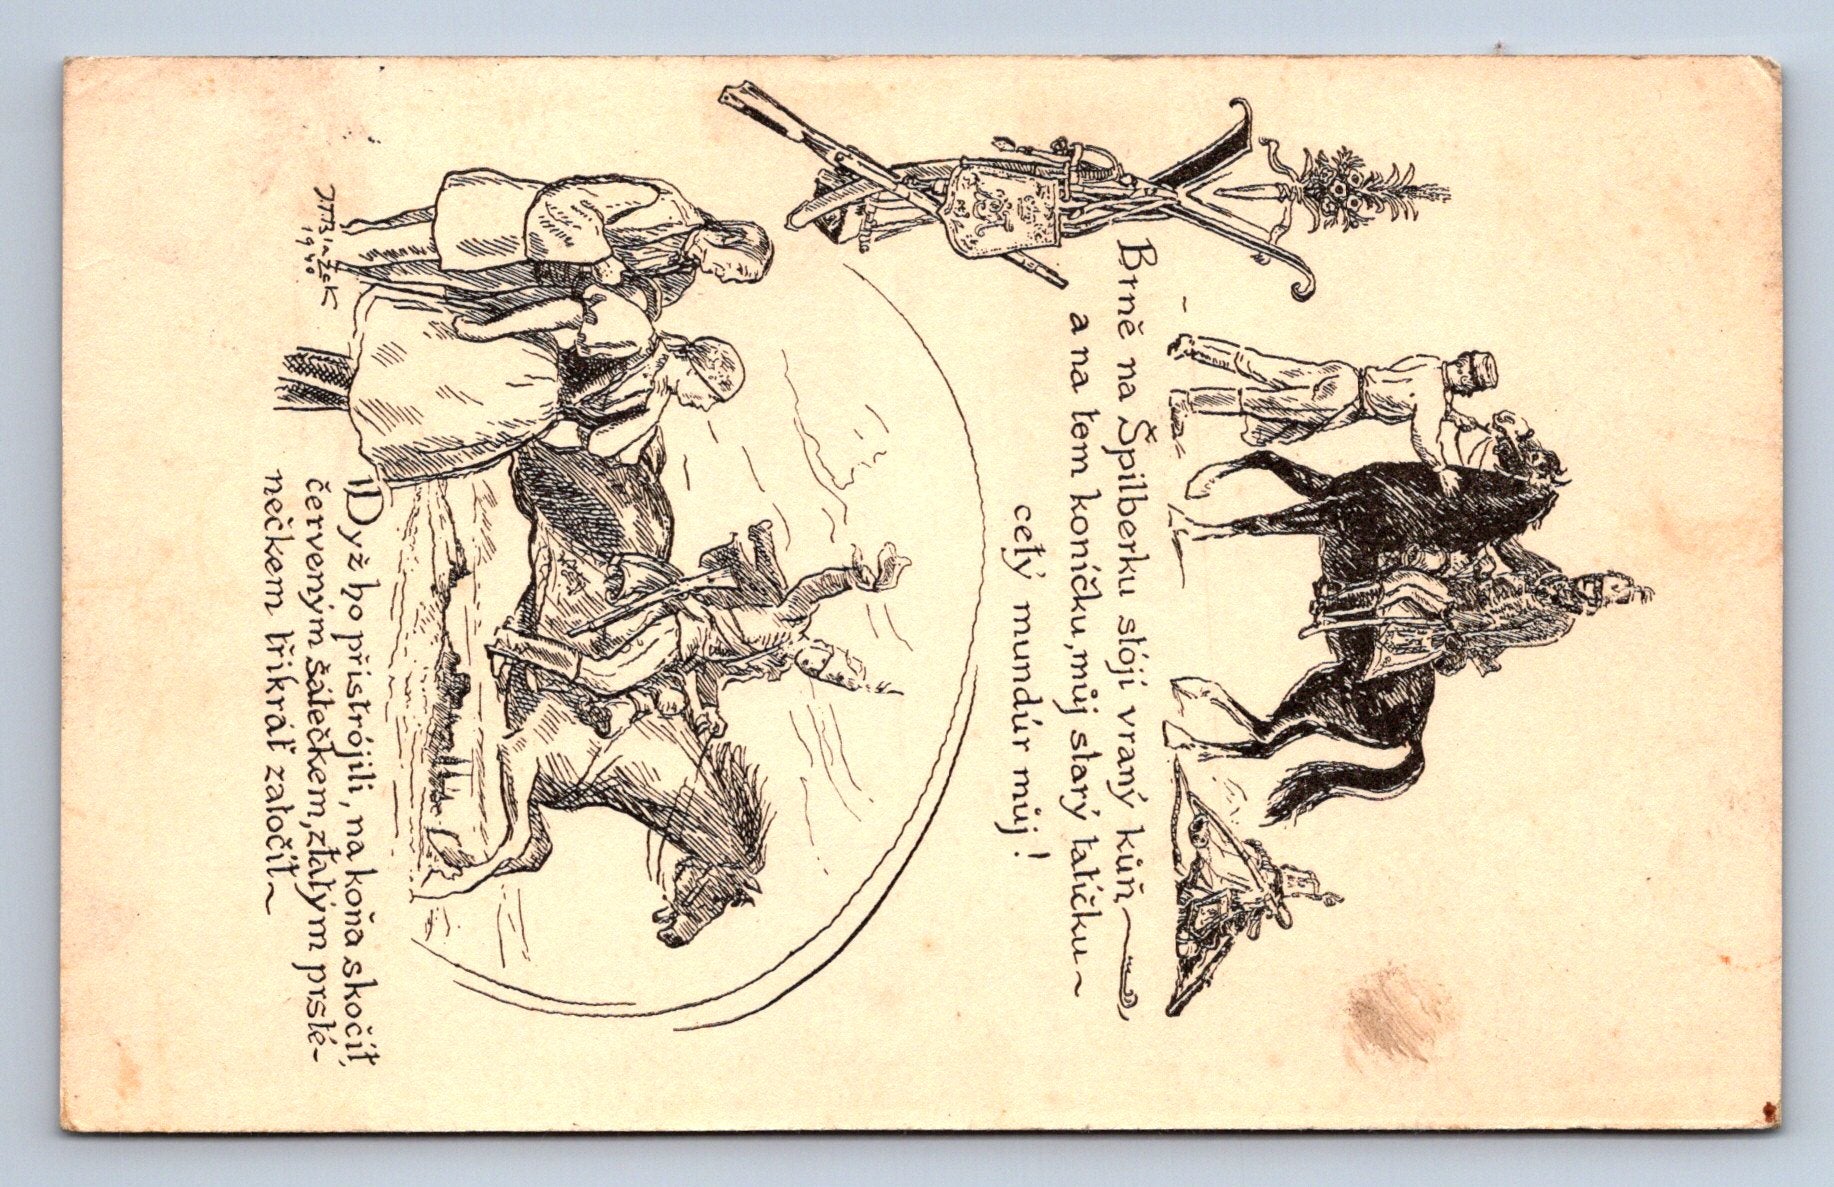 Brně na Špilberku stójí vraný kůň,
a na tem koníčku, můj starý tatíčku
celý mundúr můj!
Dyž ho přistrójili, na koňa skočíł,
červeným šátečkem, złatým prslé-
nečkem třikrát zatočíł
1940